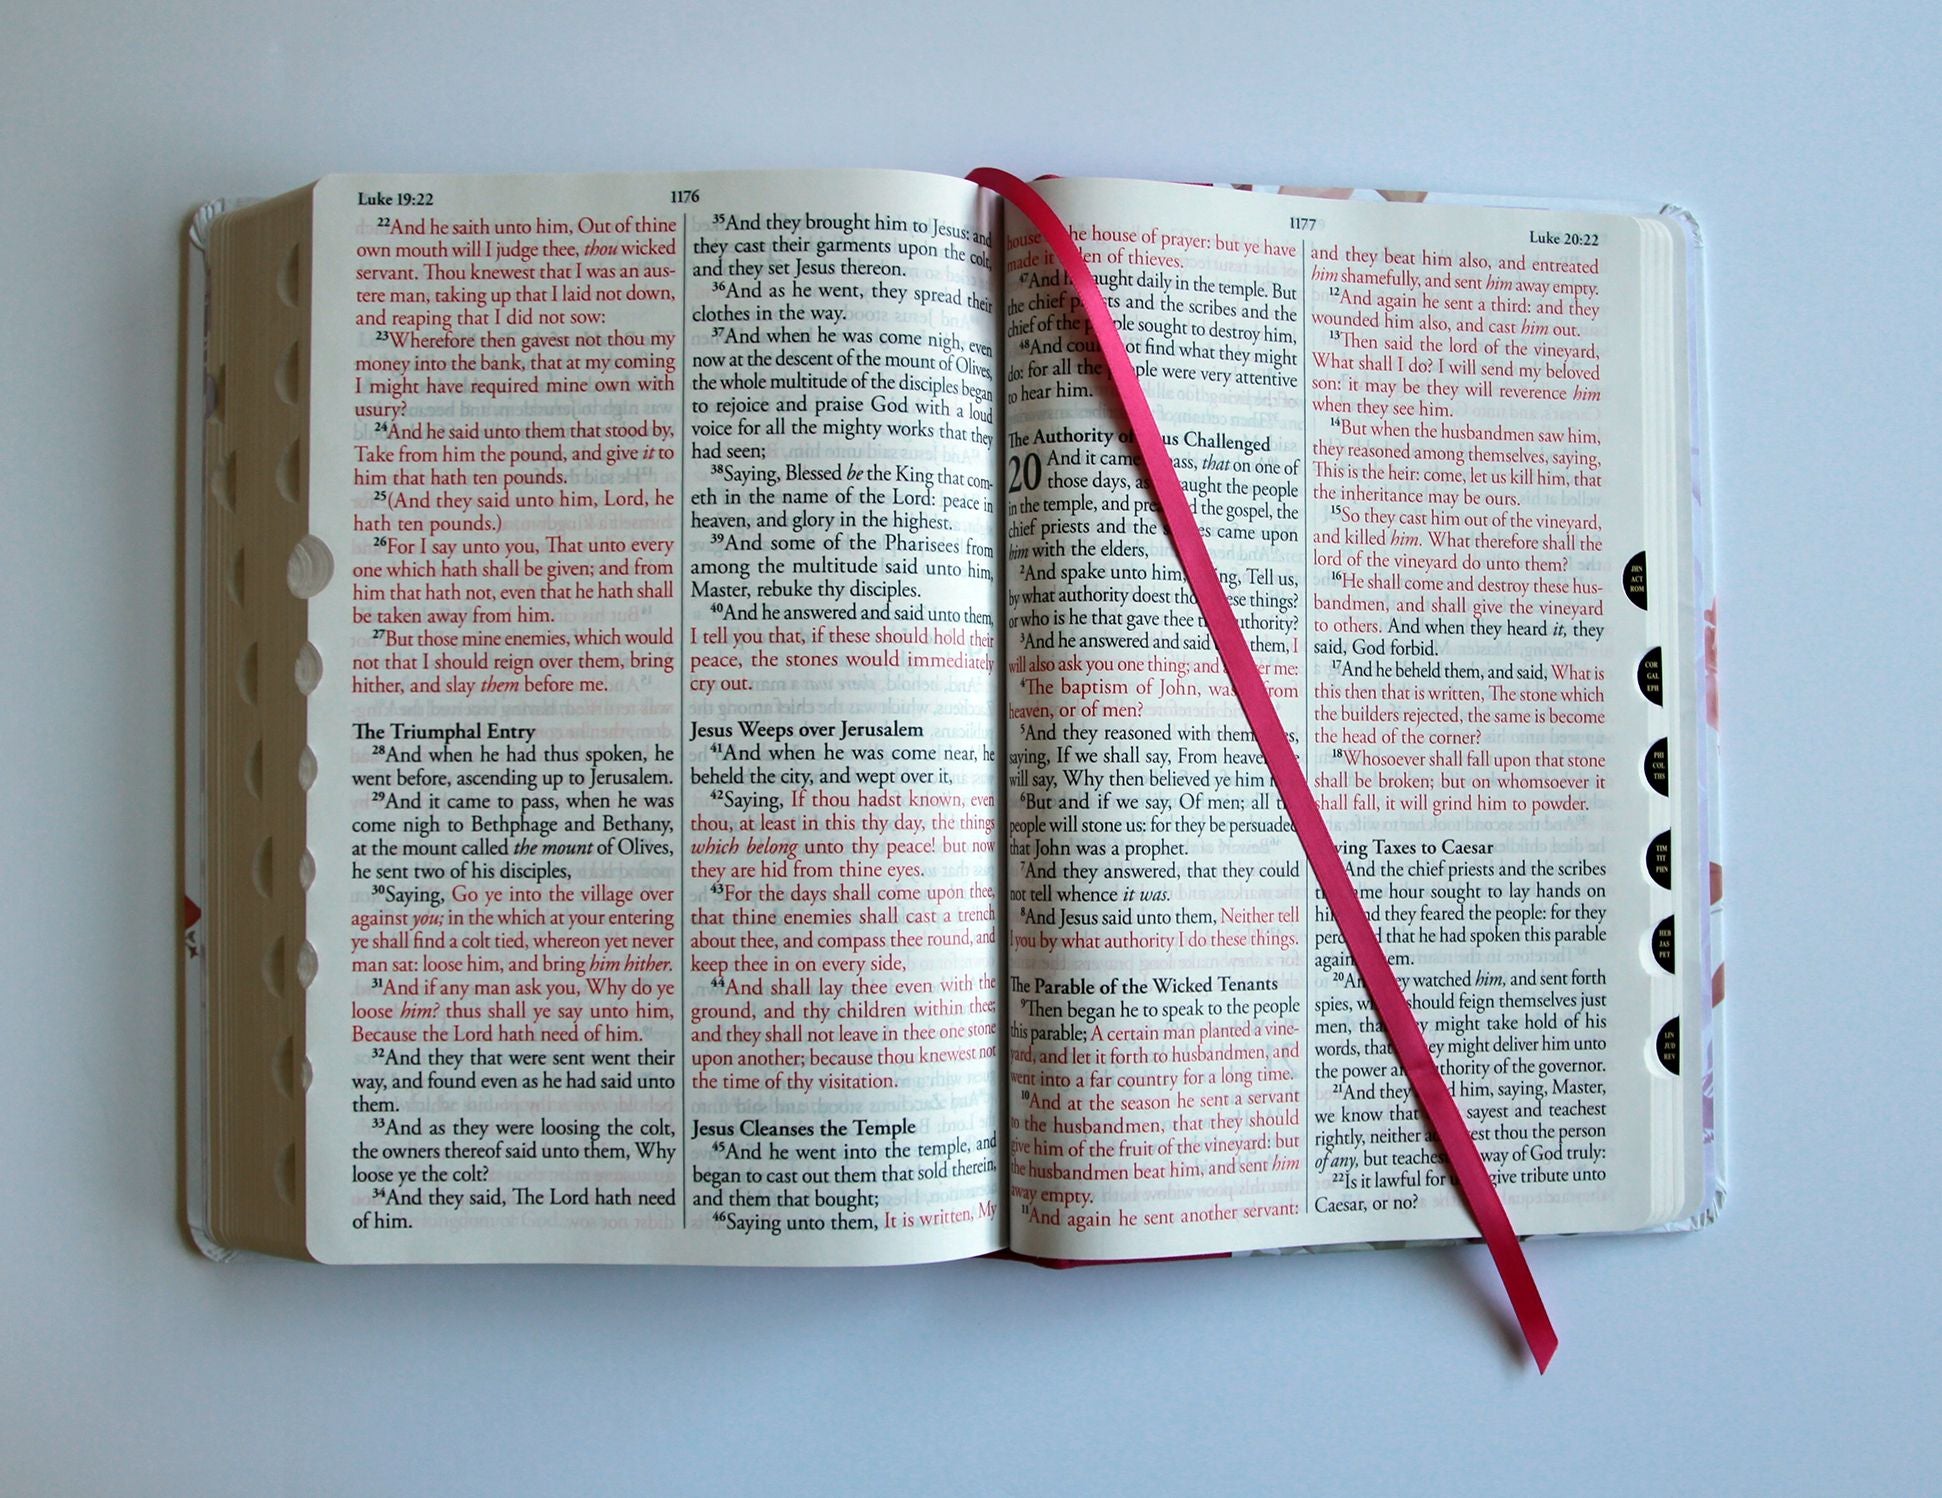 Luke 19:22
1176
22And he saith unto him, Out of thine
own mouth will I judge thee, thou wicked
servant. Thou knewest that I was an aus-
tere man, taking up that I laid not down,
and reaping that I did not sow:
23Wherefore then gavest not thou my
money into the bank, that at my coming
I might have required mine own with
usury?
24And he said unto them that stood by,
Take from him the pound, and give it to
him that hath ten pounds.
25(And they said unto him, Lord, he
hath ten pounds.)
26For I say unto you, That unto every
one which hath shall be given; and from
him that hath not, even that he hath shall
be taken away from him.
27But those mine enemies, which would
not that I should reign over them, bring
hither, and slay them before me.
The Triumphal Entry
28And when he had thus spoken, he
went before, ascending up to Jerusalem.
29And it came to pass, when he was
come nigh to Bethphage and Bethany,
at the mount called the mount of Olives,
he sent two of his disciples,
30Saying, Go ye into the village over
against you; in the which at your entering
ye shall find a colt tied, whereon yet never
man sat: loose him, and bring him hither.
31And if any man ask you, Why do ye
loose him? thus shall ye say unto him,
Because the Lord hath need of him.
32And they that were sent went their
way, and found even as he had said unto
them.
33And as they were loosing the colt,
the owners thereof said unto them, Why
loose ye the colt?
34And they said, The Lord hath need
of him.
35And they brought him to Jesus: and
they cast their garments upon the colt,
and they set Jesus thereon.
36And as he went, they spread their
clothes in the way.
37And when he was come nigh, even
now at the descent of the mount of Olives,
the whole multitude of the disciples began
to rejoice and praise God with a loud
voice for all the mighty works that they
had seen;
38Saying, Blessed be the King that com-
eth in the name of the Lord: peace in
heaven, and glory in the highest.
39And some of the Pharisees from
among the multitude said unto him,
Master, rebuke thy disciples.
40And he answered and said unto them,
I tell you that, if these should hold their
peace, the stones would immediately
cry out.
Jesus Weeps over Jerusalem
41And when he was come near, he
beheld the city, and wept over it,
42Saying, If thou hadst known, even
thou, at least in this thy day, the things
which belong unto thy peace! but now
they are hid from thine eyes.
43For the days shall come upon thee,
that thine enemies shall cast a trench
about thee, and compass thee round, and
keep thee in on every side,
44And shall lay thee even with the
ground, and thy children within thee;
and they shall not leave in thee one stone
upon another; because thou knewest not
the time of thy visitation.
Jesus Cleanses the Temple
45And he went into the temple, and
began to cast out them that sold therein,
and them that bought;
46Saying unto them, It is written, My
1177
Luke 20:22
house the house of prayer: but ye have
made it den of thieves.
47And taught daily in the temple. But
the chief priests and the scribes and the
chief of the people sought to destroy him,
48And could not find what they might
do: for all the people were very attentive
to hear him.
The Authority of Jesus Challenged
20 And it came pass, that on one of
those days, as taught the people
in the temple, and the gospel, the
chief priests and the scribes came upon
him with the elders,
2And spake unto him, Tell us,
by what authority doest these things?
or who is he that gave thee authority?
3And he answered and said them, I
will also ask you one thing; and me:
4The baptism of John, was from
heaven, or of men?
5And they reasoned with
saying, If we shall say, From heaven
will say, Why then believed ye him
6But and if we say, Of men; all
people will stone us: for they be persuaded
that John was a prophet.
7And they answered, that they could
not tell whence it was.
8And Jesus said unto them, Neither tell
I you by what authority I do these things.
The Parable of the Wicked Tenants
9Then began he to speak to the people
this parable; A certain man planted a vine-
yard, and let it forth to husbandmen, and
went into a far country for a long time.
10And at the season he sent a servant
to the husbandmen, that they should
give him of the fruit of the vineyard: but
the husbandmen beat him, and sent him
away empty.
11And again he sent another servant:
and they beat him also, and entreated
him shamefully, and sent him away empty.
12And again he sent a third: and they
wounded him also, and cast him out.
13Then said the lord of the vineyard,
What shall I do? I will send my beloved
son: it may be they will reverence him
when they see him.
14But when the husbandmen saw him,
they reasoned among themselves, saying,
This is the heir: come, let us kill him, that
the inheritance may be ours.
15So they cast him out of the vineyard,
and killed him. What therefore shall the
lord of the vineyard do unto them?
16He shall come and destroy these hus-
bandmen, and shall give the vineyard
to others. And when they heard it, they
said, God forbid.
17And he beheld them, and said, What is
this then that is written, The stone which
the builders rejected, the same is become
the head of the corner?
18Whosoever shall fall upon that stone
shall be broken; but on whomsoever it
shall fall, it will grind him to powder.
Paying Taxes to Caesar
And the chief priests and the scribes
same hour sought to lay hands on
and they feared the people: for they
that he had spoken this parable
against them.
20And they watched him, and sent forth
spies, should feign themselves just
men, that they might take hold of his
words, that they might deliver him unto
the power authority of the governor.
21And they him, saying, Master,
we know that sayest and teachest
rightly, neither thou the person
of any, but teachest way of God truly:
22Is it lawful for give tribute unto
Caesar, or no?
JHN
ACT
ROM
COR
GAL
EPH
PHI
COL
THS
TIM
TIT
PHN
HEB
JAS
PET
JUD
REV